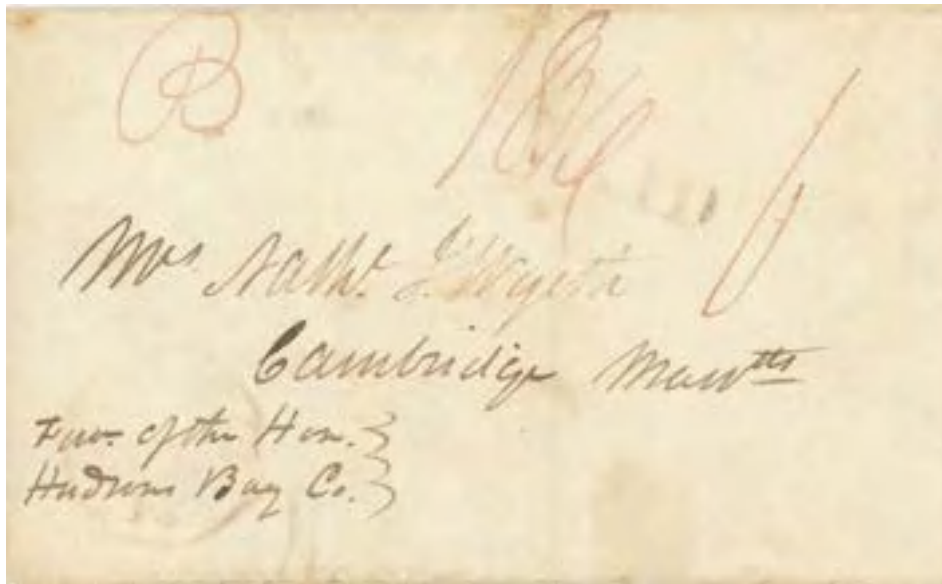 B
Mrs Nathl. J. Wyeth
Cambridge Massts
Favr. of the Hon. }
Hudsons Bay Co. }